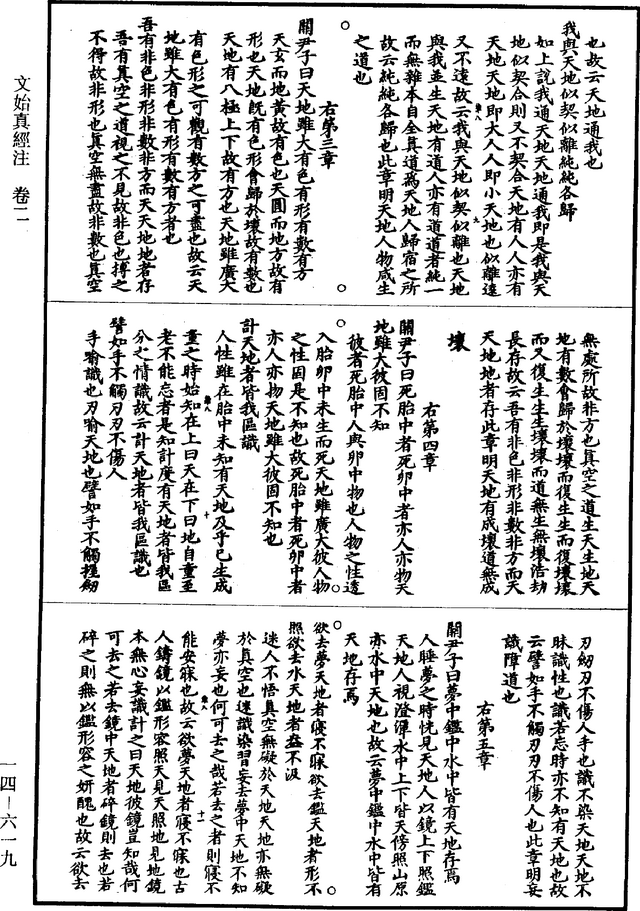 也故云天地通我也
我與天地似契似離純純各歸
如上說我通天地天地通我即是我與天
地似契合則又不契合天地有人人亦有
天地天地即大人人即小天地也似離遠
又不遠故云我與天地似契似離也天地
與我並生天地有道人亦有道道者純一
而無雜本自全真道為天地人歸宿之所
故云純純各歸也此章明天地人物咸生
之道也
右第三章
關尹子曰天地雖大有色有形有數有方
天玄而地黃故有色也天圓而地方故有
形也天地既有色形會歸於壞故有數也
天地有八極上下故有方也天地雖廣大
有色形之可觀有數方之可盡也故云天
地雖大有色有形有數有方者也
吾有非色非形非數非方而天天地地者存
吾有真空之道視之不見故非色也摶之
不得故非形也真空無盡故非數也真空
無處所故非方也真空之道生天生地天
地有數會歸於壞壞而復生生而復壞壞
而又復生生生壞壞而道無生無壞浩劫
長存故云吾有非色非形非數非方而天
天地地者存此章明天地有成壞道無成
壞
右第四章
關尹子曰死胎中者死卵中者亦人亦物天
地雖大彼固不知
彼者死胎中人與卵中物也人物之性透
入胎卵中未生而死天地雖廣大彼人物
之性固是不知也故死胎中者死卵中者
亦人亦物天地雖大彼固不知也
計天地者皆我區識
人性雖在胎中未知有天地及乎已生成
童之時始知在上曰天在下曰地自童至
老不能忘者是知計度有天地者皆我區
分之情識故云計天地者皆我區識也
譬如手不觸刃刃不傷人
手喻識也刃喻天地也譬如手不觸握劒
刃劒刃不傷人手也識不染天地天地不
昧識性也識若忘時亦不知有天地也故
云譬如手不觸刃刃不傷人也此章明妄
識障道也
右第五章
關尹子曰夢中鑑中水中皆有天地存焉
人睡夢之時恍見天地人以鏡上下照鑑
天地人視澄渾水中上下皆天傍照山原
亦水中天地也故云夢中鑑中水中皆有
天地存焉
欲去夢天地者寢不寐欲去鑑天地者形不
照欲去水天地者盎不汲
迷人不悟真空無礙於天地天地亦無礙
於真空也迷識染習妄去夢中天地不知
夢亦妄也何可去之哉若去之者則寢不
能安寐也故云欲去夢天地者寢不寐也古
人鑄鏡以鑑形容照天見天照地見地鏡
本無心妄識計之曰天地彼鏡豈知哉何
可去之若去鏡中天地者碎鏡則去也若
碎之則無以鑑形容之妍醜也故云欲去
文始真經注 卷二
一四－六一九